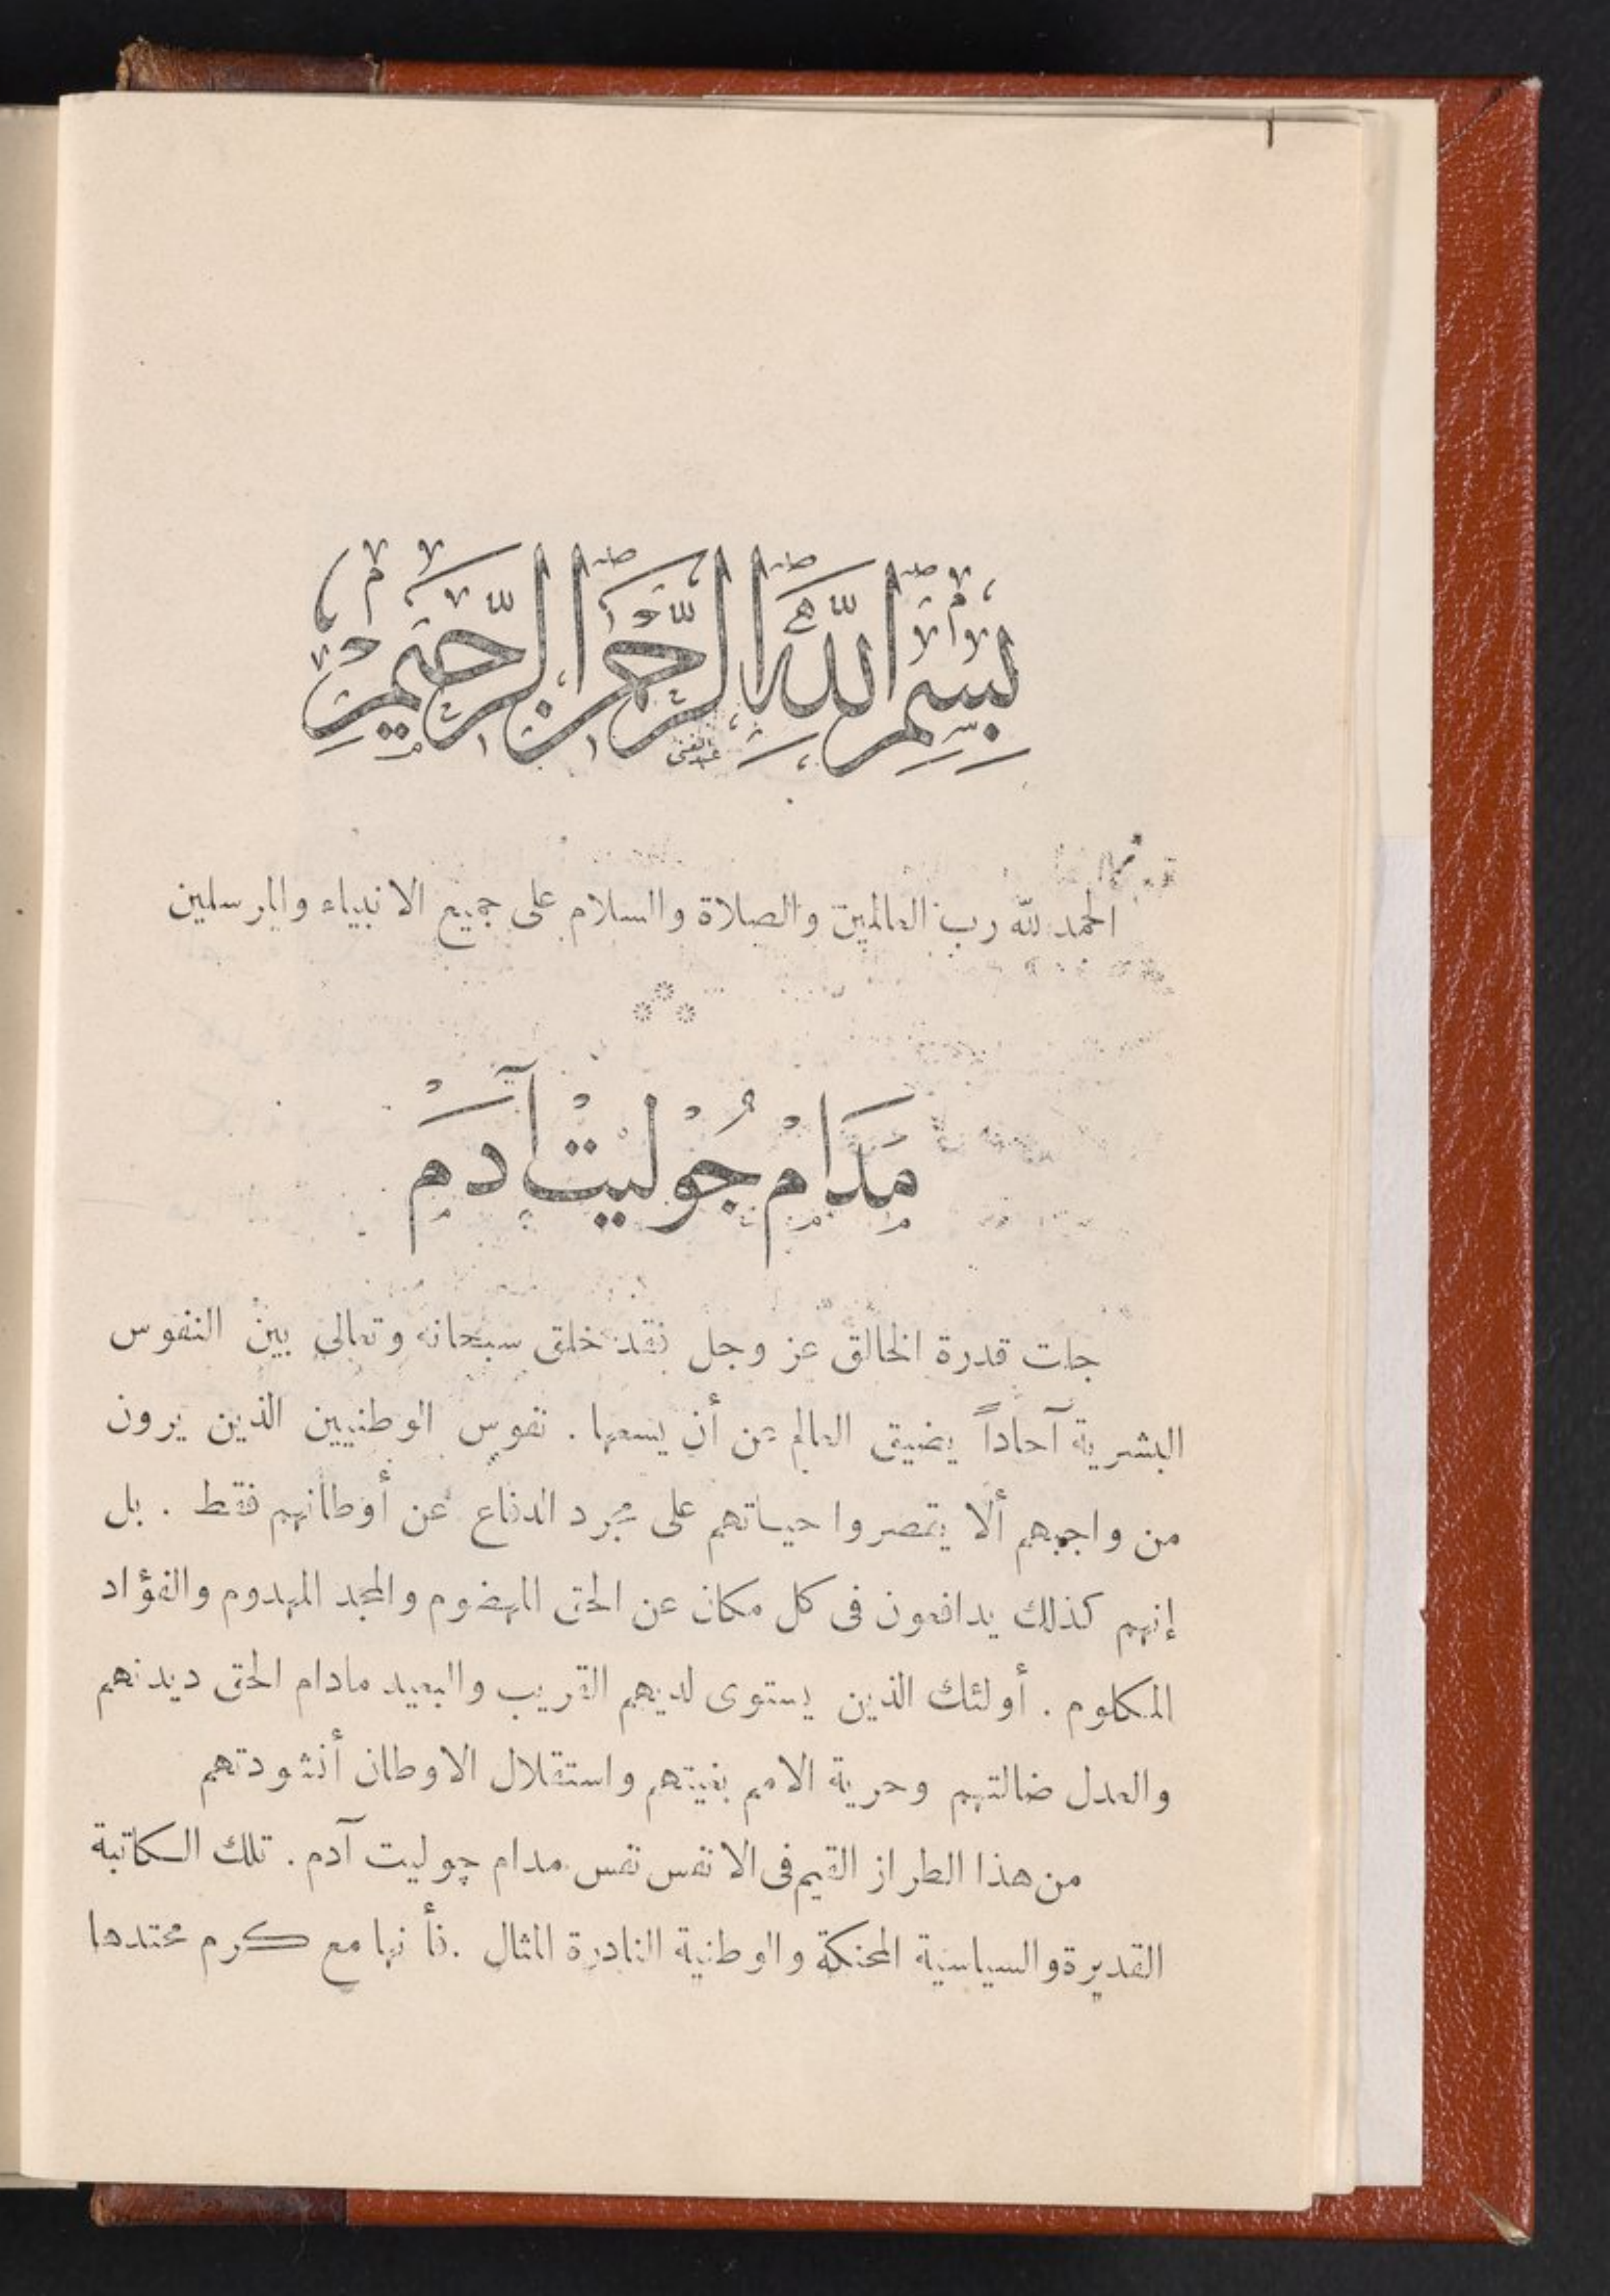 بِسْمِ اللَّهِ الرَّحْمَنِ الرَّحِيمِ
عبد الغنى
الحمد لله رب العالمين والصلاة والسلام على جميع الانبياء والمرسلين
مَدَامْ جُوْلَيتْ آدَمْ
جلت قدرة الخالق عز وجل فقد خلق سبحانه وتعالى بين النفوس
البشرية آحاداً يضيق العالم عن أن يسعها . نفوس الوطنيين الذين يرون
من واجبهم ألا يقصروا حياتهم على مجرد الدفاع عن أوطانهم فقط . بل
إنهم كذلك يدافعون فى كل مكان عن الحق المهضوم والمجد المهدوم والفؤاد
المكلوم . أولئك الذين يستوى لديهم القريب والبعيد مادام الحق ديدنهم
والعدل ضالتهم وحرية الامم بغيتهم واستقلال الاوطان أنشودتهم
من هذا الطراز القيم فى الانفس نفس مدام چوليت آدم . تلك الكاتبة
القديرة والسياسية المحنكة والوطنية النادرة المثال . فأنها مع كرم محتدها